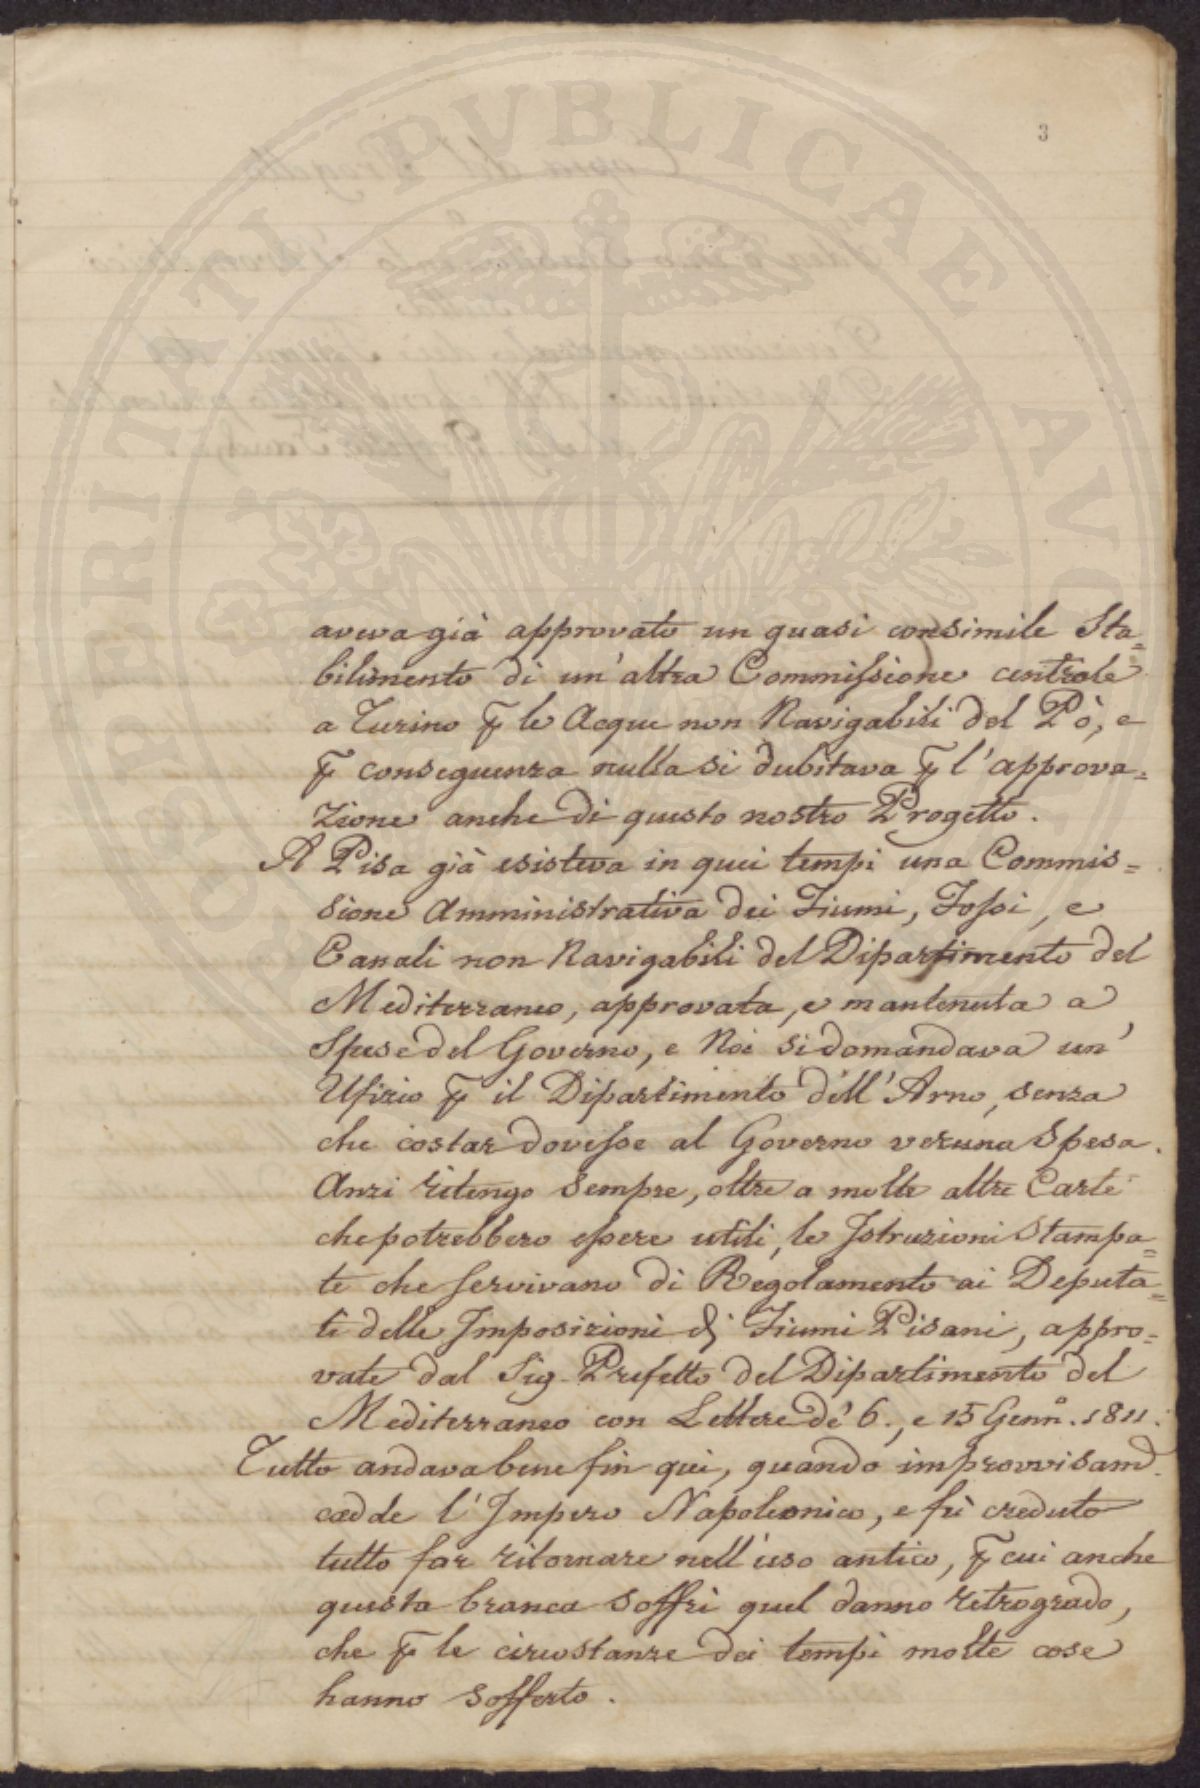 3
PROSPERITATI PVBLICAE AVG
aveva già approvato un quasi consimile Sta=
bilimento di un' altra Commissione centrale
a Turino ꝑ le Acque non Navigabili del Pò, e
ꝑ conseguenza nulla si dubitava ꝑ l' approva=
zione anche di questo nostro Progetto.
A Pisa già esisteva in quei tempi una Commis=
sione Amministrativa dei Fiumi, Fossi, e
Canali non Navigabili del Dipartimento del
Mediterraneo, approvata, e mantenuta a
Spese del Governo, e Noi si domandava un'
Ufizio ꝑ il Dipartimento dell' Arno, senza
che costar dovesse al Governo veruna Spesa.
Anzi ritengo sempre, oltre a molte altre Carte
che potrebbero essere utili, le Istruzioni Stampa=
te che servivano di Regolamento ai Deputa=
ti delle Imposizioni di Fiumi Pisani, appro=
vate dal Sig. Prefetto del Dipartimento del
Mediterraneo con Lettere de' 6., e 15 Gennº. 1811.
Tutto andava bene fin qui, quando improvvisamᵉ.
cadde l' Impero Napoleonico, e fù creduto
tutto far ritornare nell' uso antico, ꝑ cui anche
questa branca soffrì quel danno retrogrado,
che ꝑ le circostanze dei tempi molte cose
hanno sofferto.